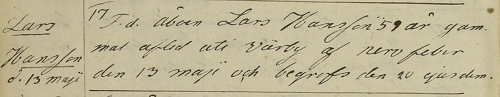 Lars
Hansson
d. 13 maji
17 F. d. åboen Lars Hansson 59 år gam-
mal afled uti Värby af nerv feber
den 13 maji och begrofs den 20 ejusdem.